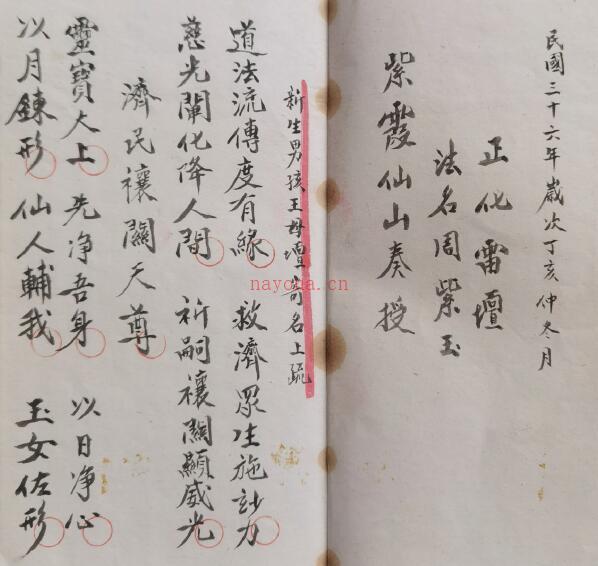 民國三十六年歲次丁亥仲冬月
正化雷壇
法名周紫玉
紫霞仙山奏授
新生男孩王母壇寄名上疏
道法流傳度有緣 救濟眾生施玅力
慈光闡化降人間 祈嗣禳關顯威光
濟民禳關天尊
靈寶大上 先净吾身 以日净心
以月鍊形 仙人輔我 玉女佐形
nayona.cn